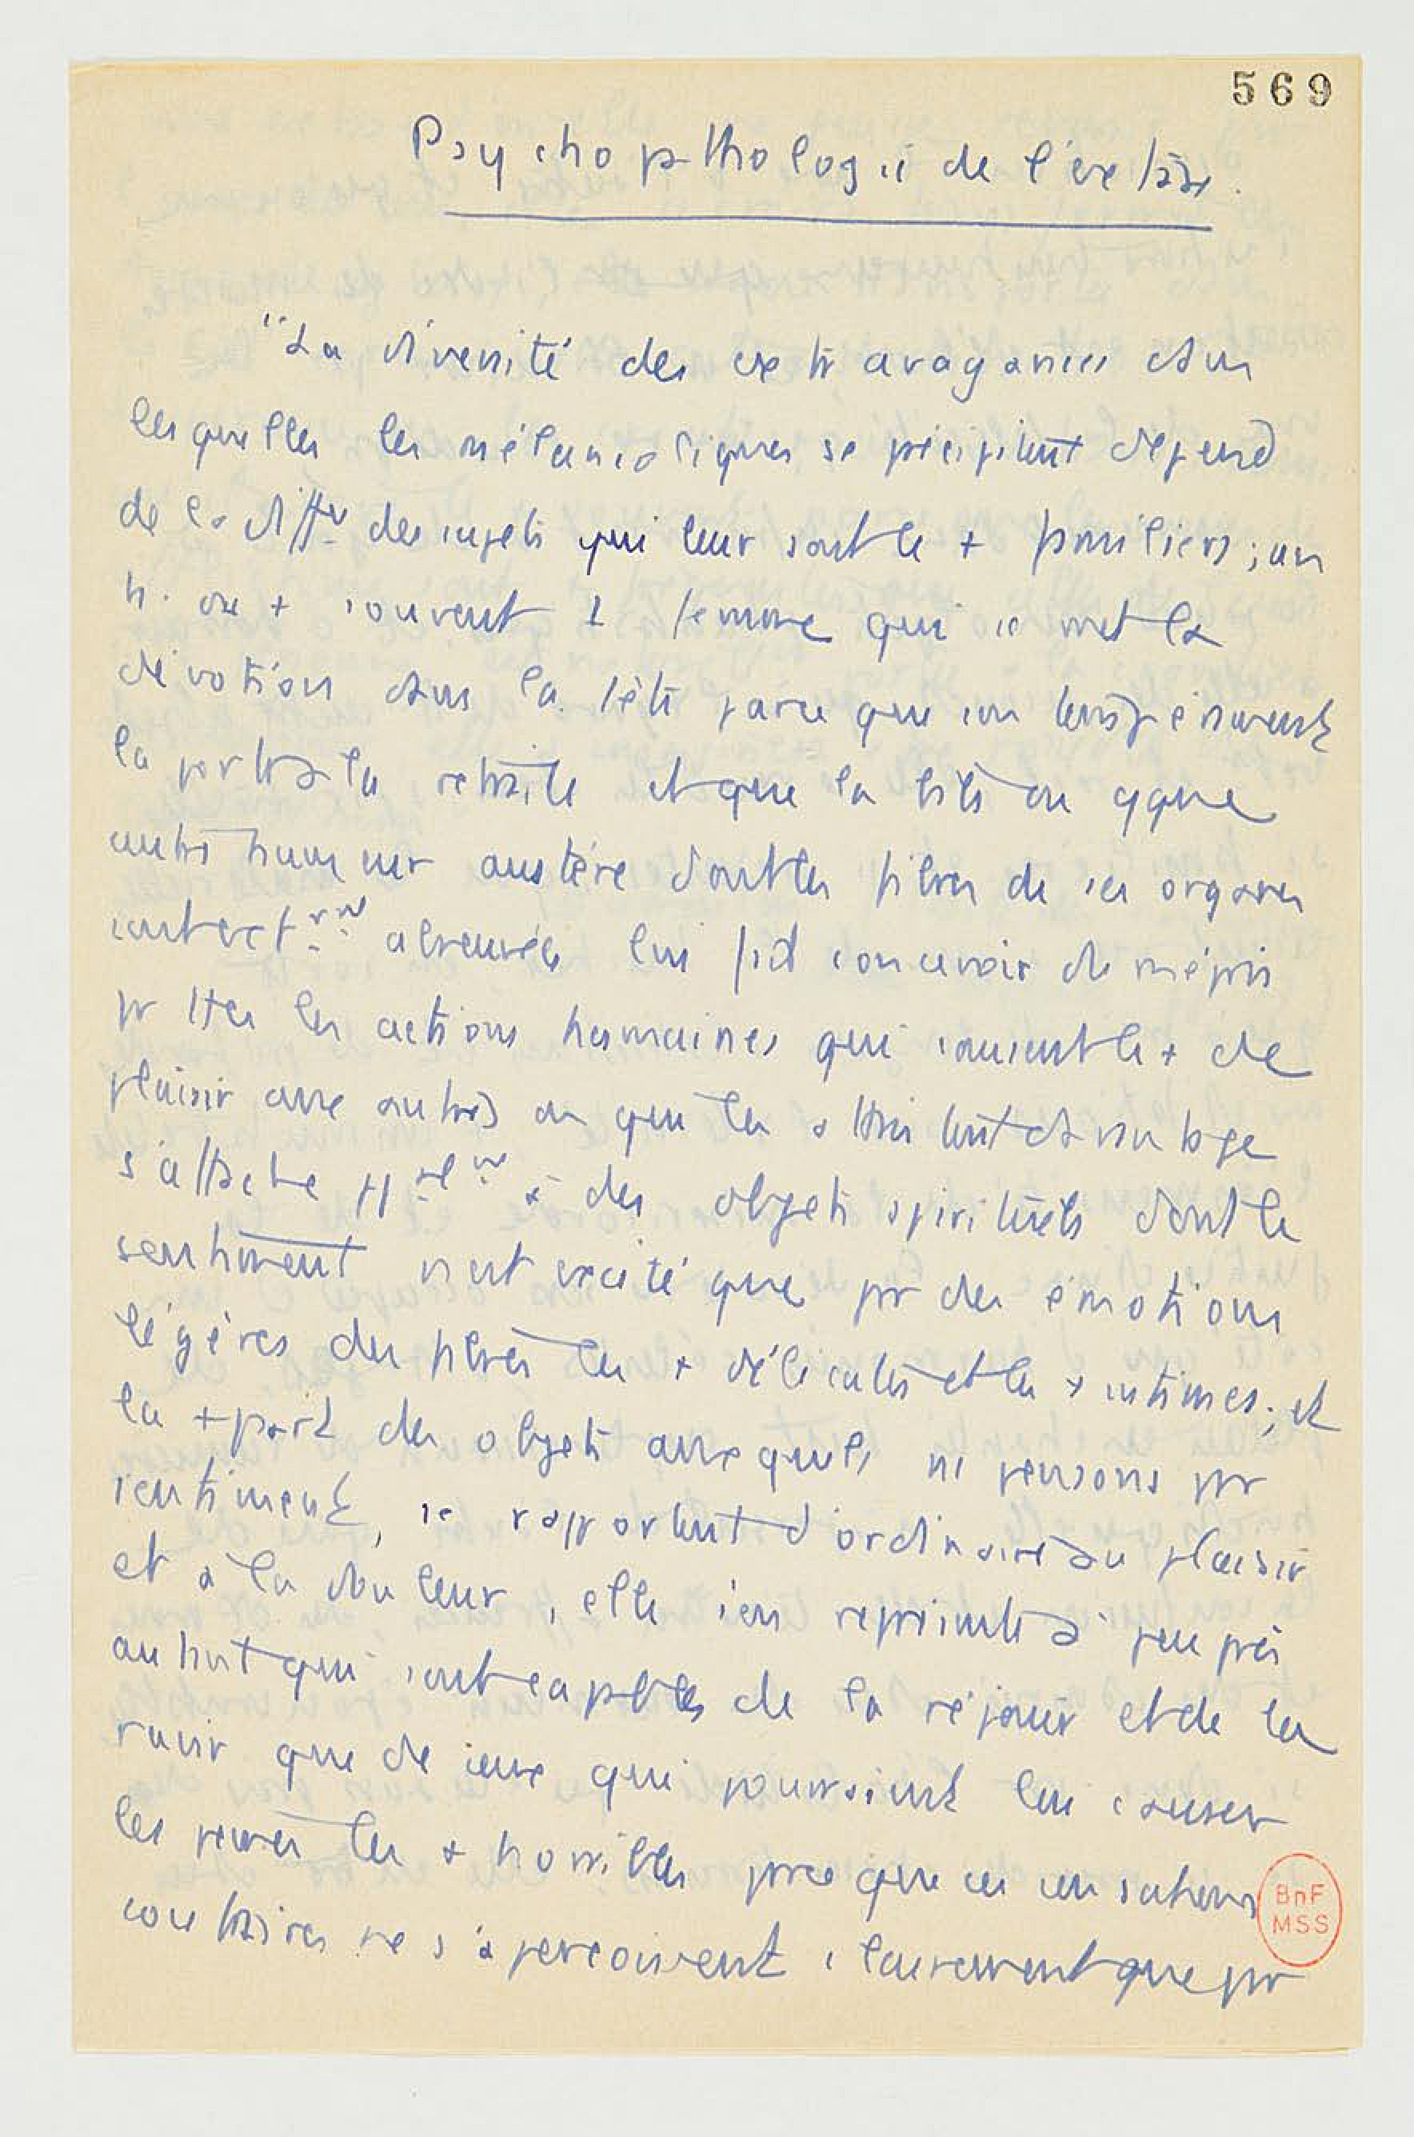 569
Psychopathologie de l'extase.
"La diversité des extravagances dans
lesquelles les mélancoliques se précipitent dépend
de la diffce des sujets qui leur sont le + familiers ; un
h. ou + souvent 1 femme qui se met la
dévotion dans la tête parce que son tempérament
la porte à la retraite et que la bile ou qque
autre humeur austère dont les fibres de ses organes
sont extrmt abreuvées lui fait concevoir du mépris
pr ttes les actions humaines qui causent le + de
plaisir aux autres ou qui les attristent davantage
s'attache ppalmt à des objets spirituels dont le
sentiment n'est excité que par des émotions
légères des fibres les + délicates et les + intimes ; et
la + part des objets auxquels ns pensons par
sentiment, se rapportent d'ordinaire au plaisir
et à la douleur, elle s'en représente à peu près
autant qui sont capables de la réjouir et de la
ravir que de ceux qui pourraient lui causer
les peines les + horribles parce que ces sensations
contraires ne s'aperçoivent clairement que par
BnF
MSS